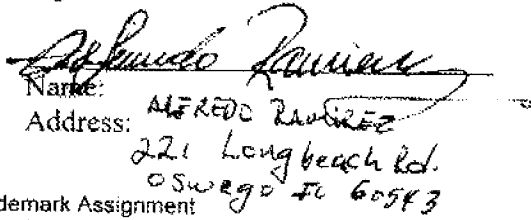 Alfredo Ramirez
Name:
Address: ALFREDO RAMIREZ
221 Longbeach Rd.
Oswego IL 60543
demark Assignment